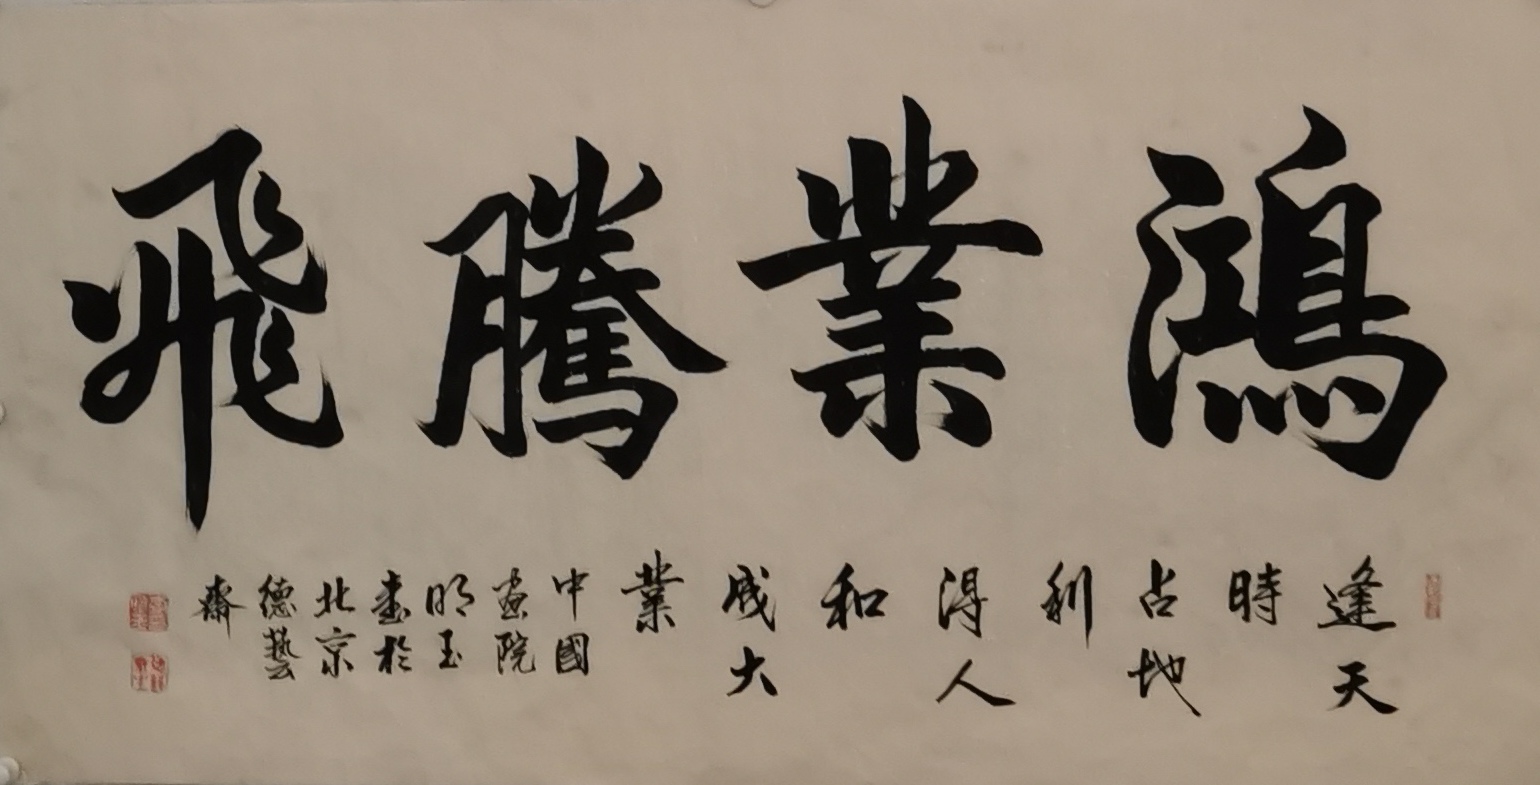 鴻業騰飛
逢天
時
占地
利
得人
和
成大
業
中國
畫院
明玉
書於
北京
德藝
齋